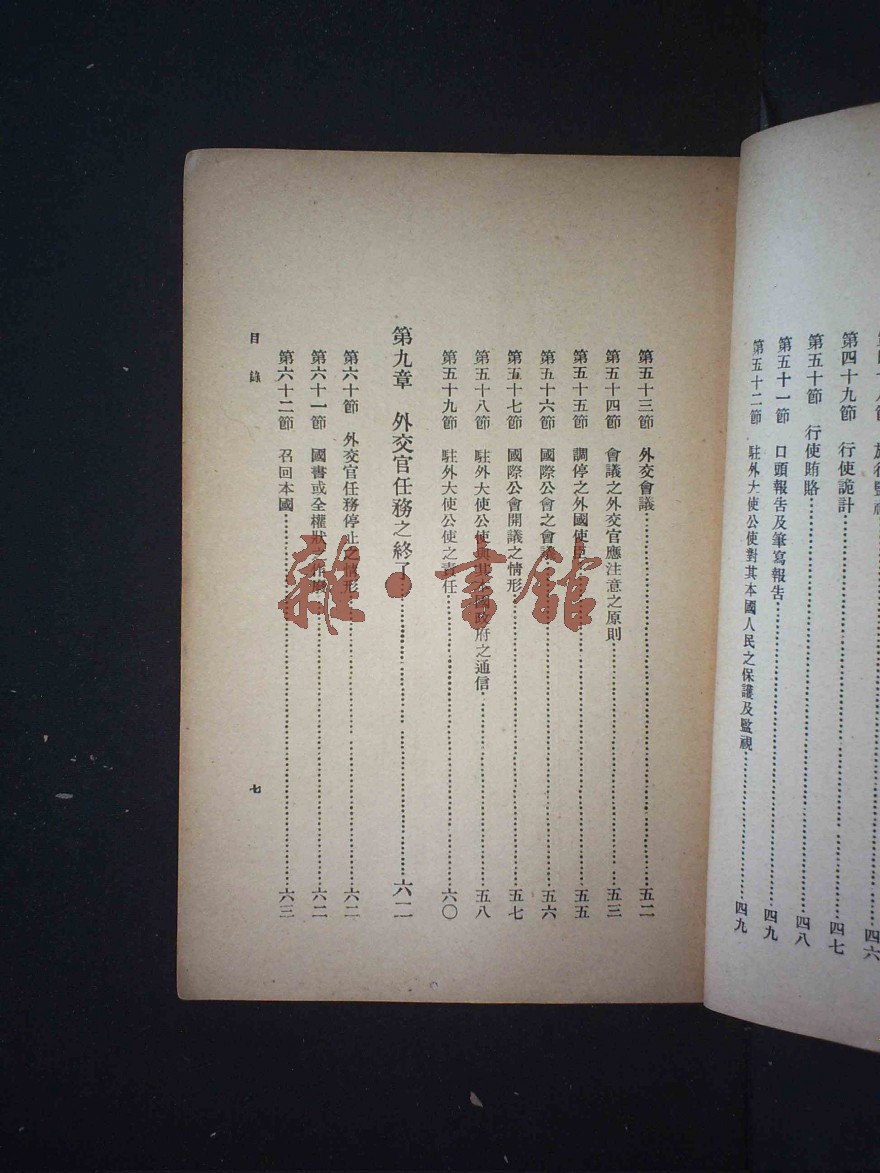 第四十九節 行使詭計……四七
第五十節 行使賄賂……四八
第五十一節 口頭報告及筆寫報告……四九
第五十二節 駐外大使公使對其本國人民之保護及監視……四九
第五十三節 外交會議……五二
第五十四節 會議之外交官應注意之原則……五三
第五十五節 調停之外國使臣……五五
第五十六節 國際公會之會議……五六
第五十七節 國際公會開議之情形……五七
第五十八節 駐外大使公使與其本國政府之通信……五八
第五十九節 駐外大使公使之責任……六〇
第九章 外交官任務之終了……六二
第六十節 外交官任務停止之情形……六二
第六十一節 國書或全權狀之……六二
第六十二節 召回本國……六三
目錄
七
雜·書館